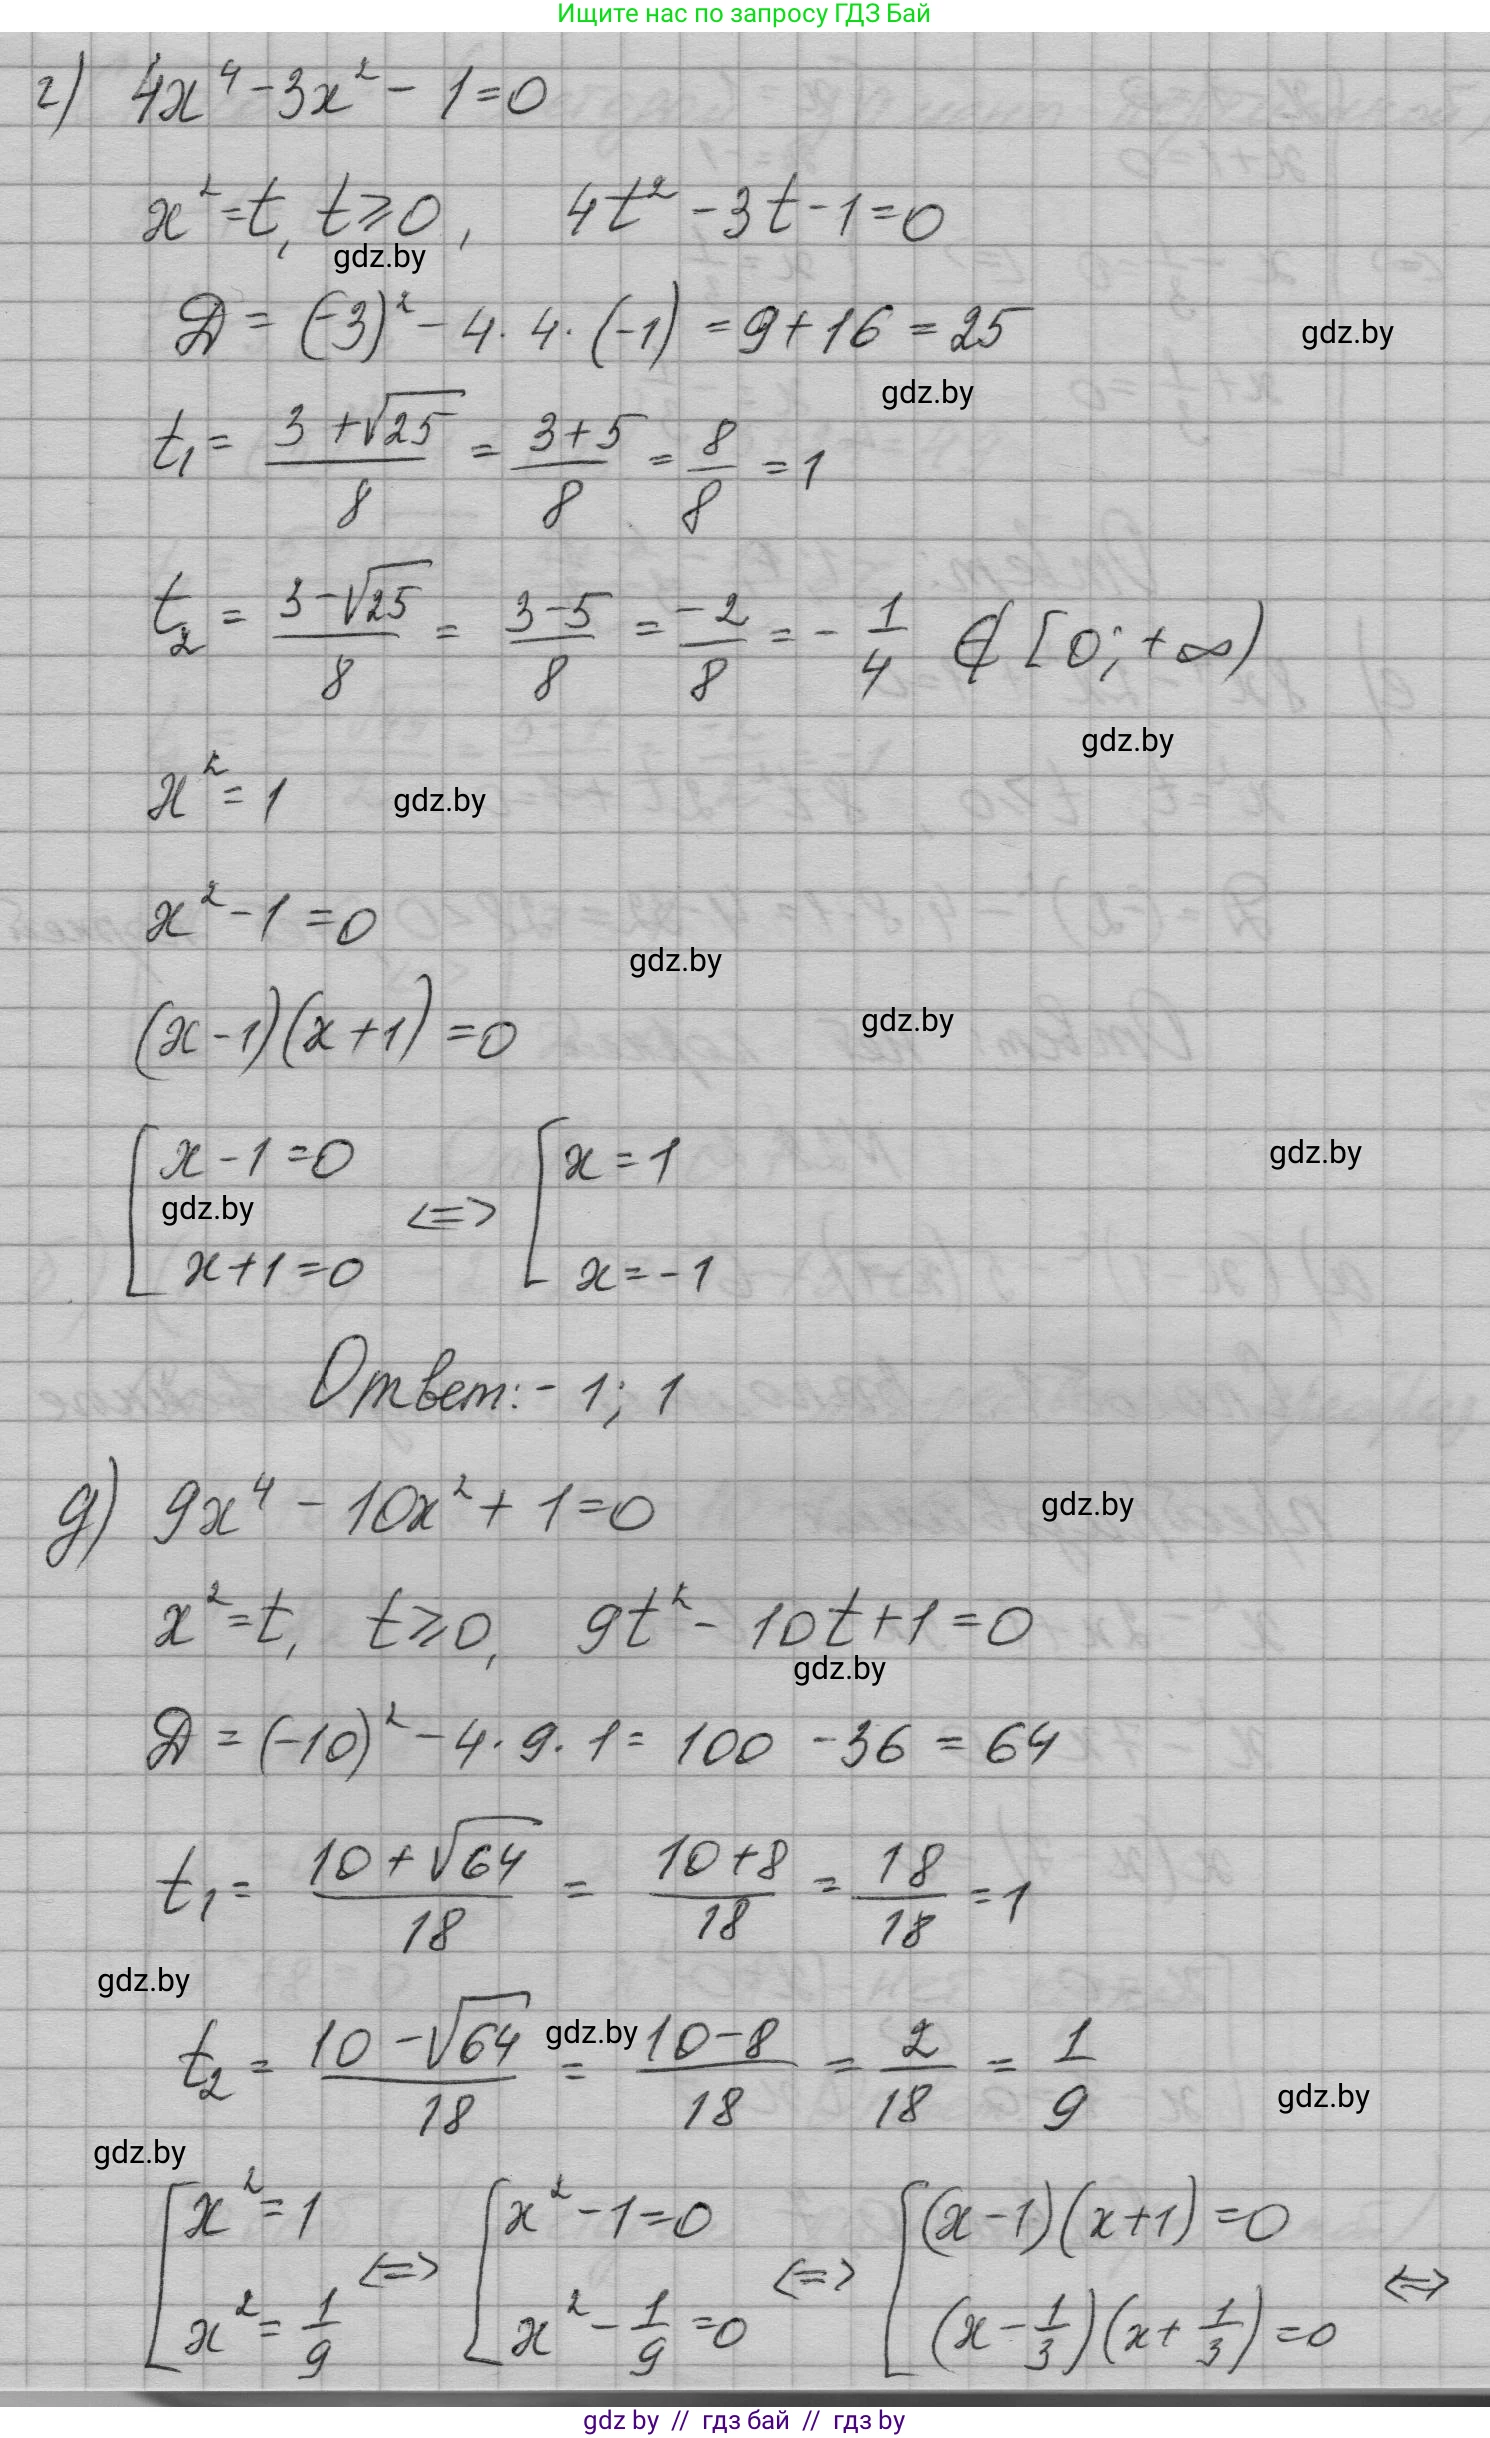 Ищите нас по запросу ГДЗ Бай
г) 4x⁴ - 3x² - 1 = 0
x² = t, t ≥ 0, 4t² - 3t - 1 = 0
gdz.by
D = (-3)² - 4 · 4 · (-1) = 9 + 16 = 25
gdz.by
gdz.by
t₁ = (3 + √25)/8 = (3+5)/8 = 8/8 = 1
t₂ = (3 - √25)/8 = (3-5)/8 = -2/8 = -1/4 ∉ [0; +∞)
gdz.by
x² = 1
gdz.by
x² - 1 = 0
gdz.by
(x - 1)(x + 1) = 0
gdz.by
[ x - 1 = 0 <=> [ x = 1
gdz.by
gdz.by
x + 1 = 0 x = -1
Ответ: -1; 1
д) 9x⁴ - 10x² + 1 = 0
gdz.by
x² = t, t ≥ 0, 9t² - 10t + 1 = 0
gdz.by
D = (-10)² - 4 · 9 · 1 = 100 - 36 = 64
t₁ = (10 + √64)/18 = (10+8)/18 = 18/18 = 1
gdz.by
t₂ = (10 - √64)/18 = (10-8)/18 = 2/18 = 1/9
gdz.by
gdz.by
gdz.by
[ x² = 1 <=> [ x² - 1 = 0 <=> [ (x - 1)(x + 1) = 0 <=>
x² = 1/9 x² - 1/9 = 0 (x - 1/3)(x + 1/3) = 0
gdz by // гдз бай // гдз by